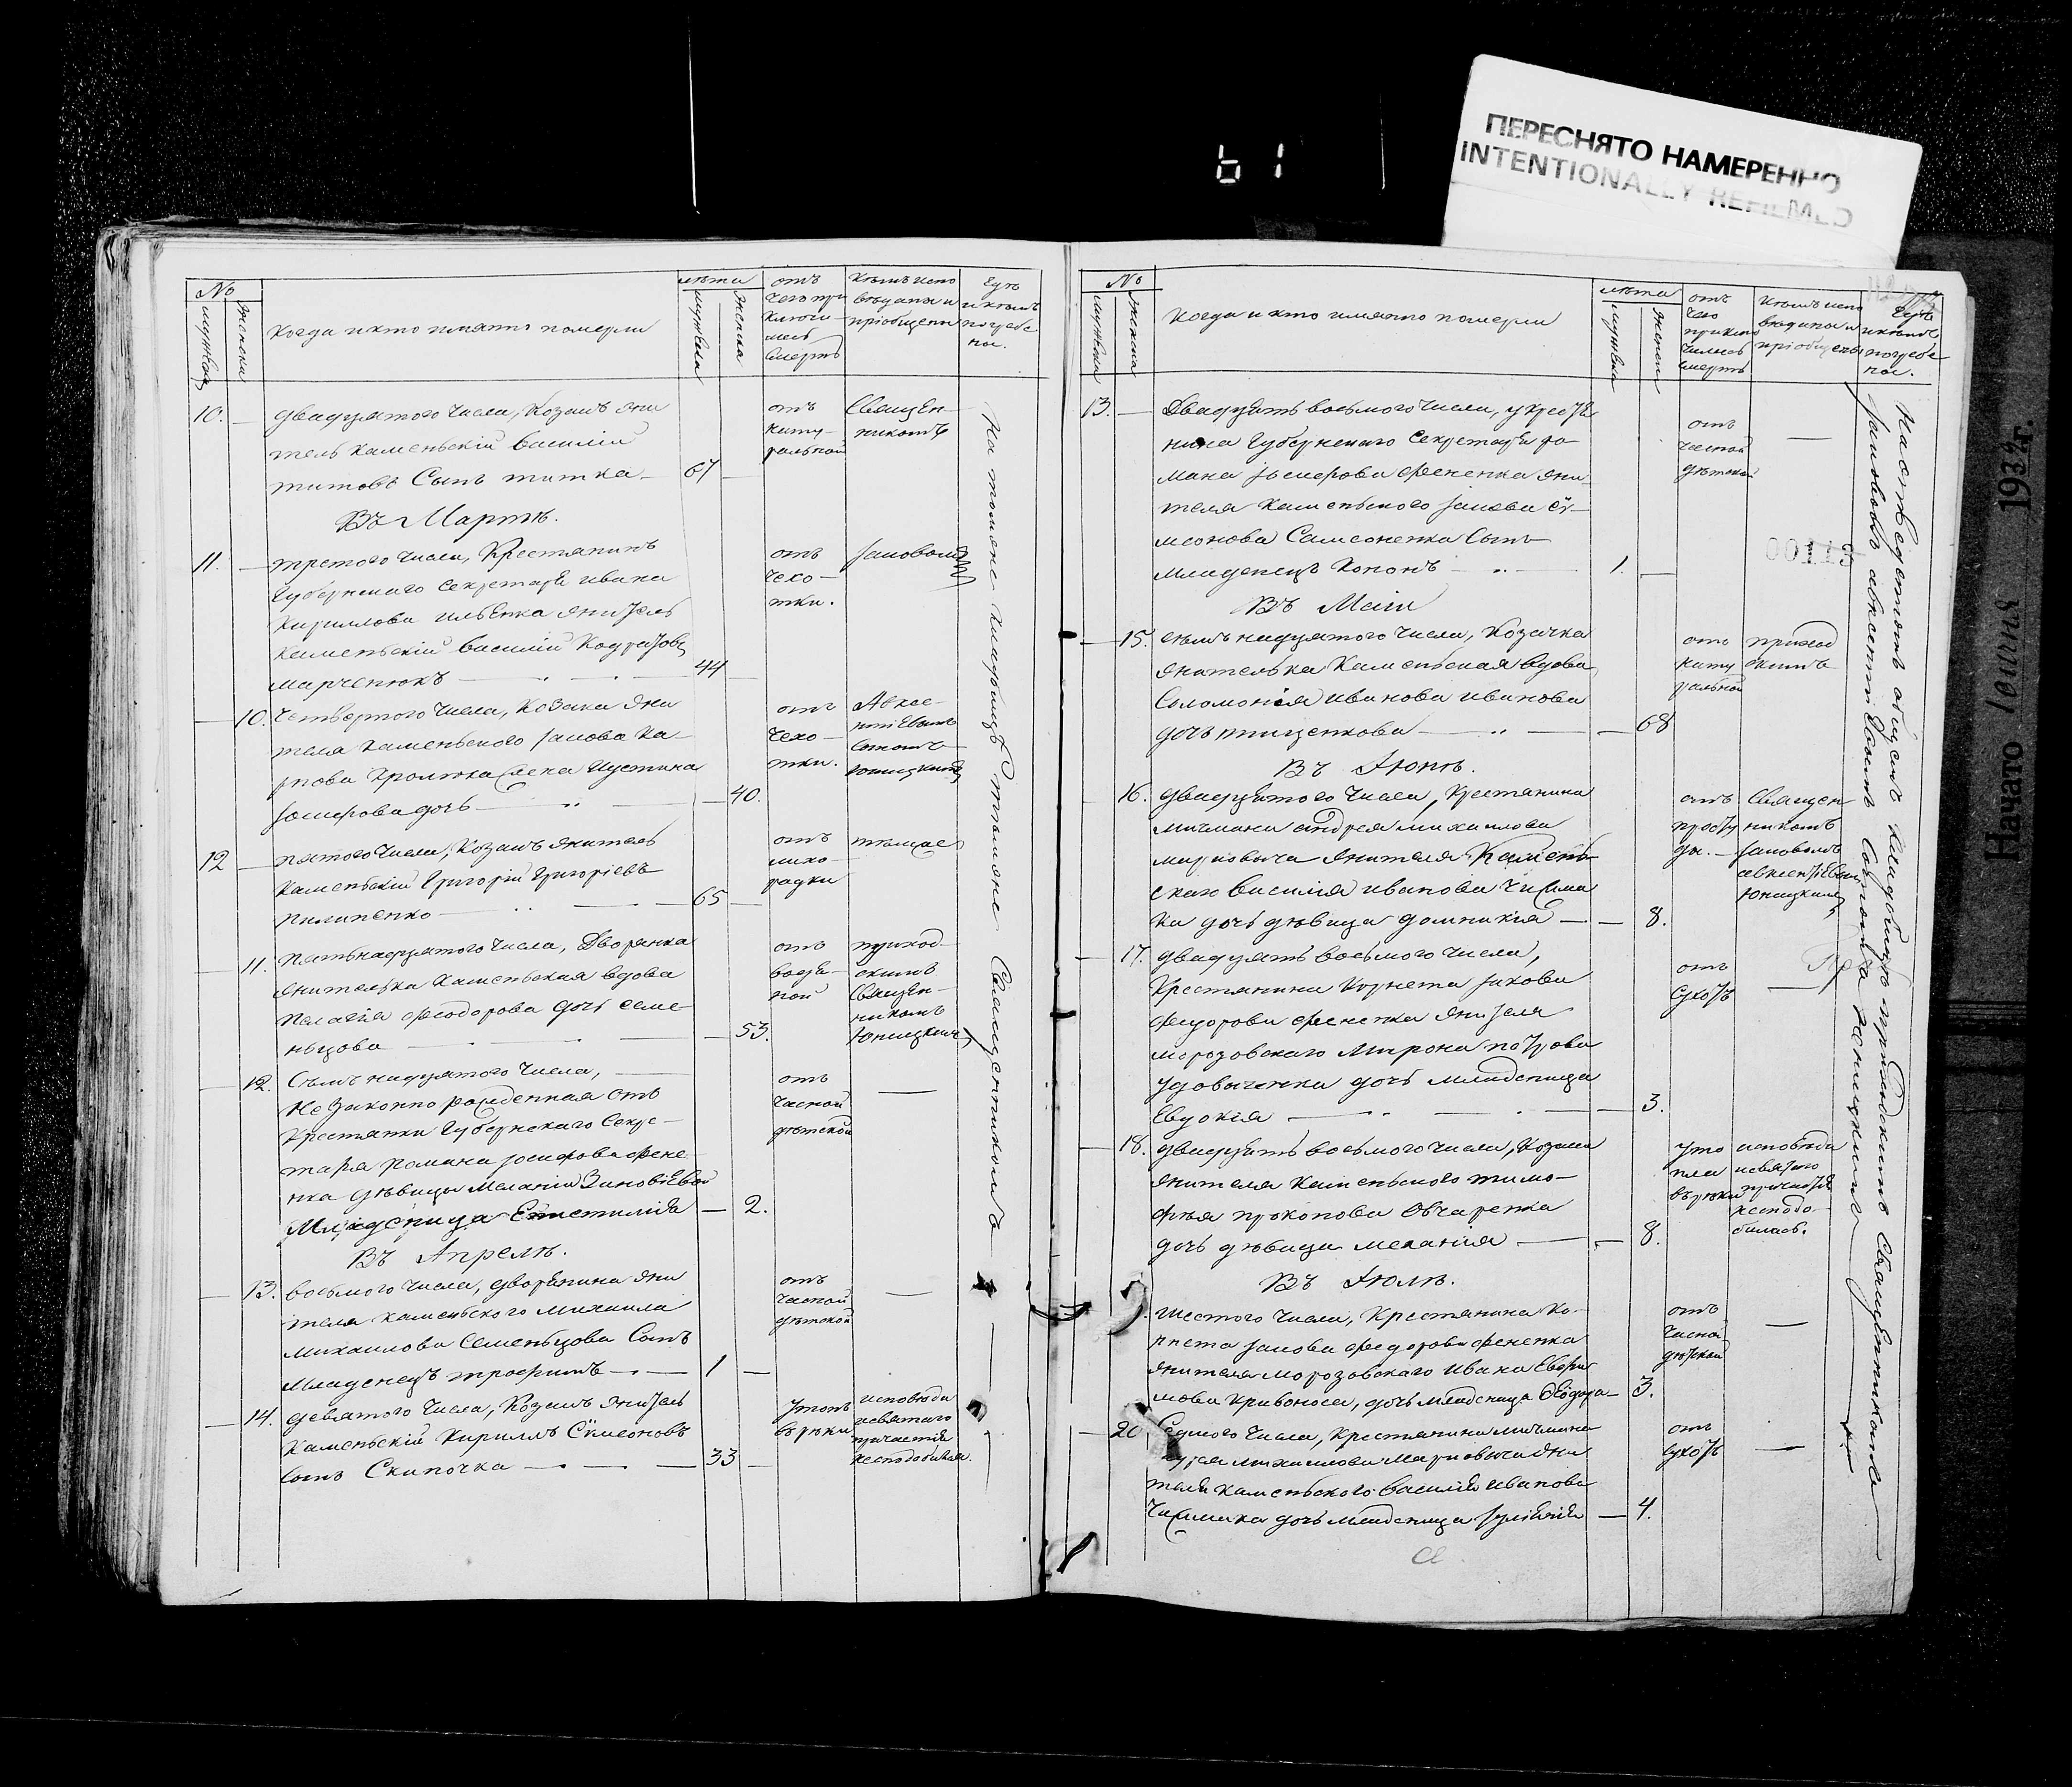 ПЕРЕСНЯТО НАМЕРЕННО
INTENTIONALLY REFILMED
№
когда и кто имянно померли
лѣта
отъ
чего при
ключи
лась
смерть
кѣмъ испо
вѣданы и
пріобщены
Гдѣ
и кѣмъ
погребе
ны.
10. двадцятого числа, Козакъ жи
тель каменьскій василій
титовъ Сынъ титка 67
отъ
нату
ральной
Священ
никомъ
Въ Мартѣ.
11. третого числа, Крестянинъ
Губернского Секретаря ивана
Кирилова ильенка житель
каменьскій василій
марченюкъ 44
отъ
чехо
тки.
Іаковомъ
10. четвертого числа, Козака жи
теля каменьского Іакова Ка
рпова жена Иустина
Іосифова дочь 40.
отъ
чехо
тки.
Авксе
нтіевымъ
Юницкимъ
12 пятого числа, Козакъ житель
каменьскій Григорій Григоріевъ
пилипенко 65
отъ
лихо
радки
тѣмже
11. пятьнадцятого числа, Дворянка
жителька каменьская вдова
пелагія феодорова дочь Семе
ньцова 53.
отъ
водя
ной
приход
скимъ
Священ
никомъ
Юницкимъ
12. Сѣмьнадцятого числа,
незаконно рожденная отъ
Крестянки Губернского Секре
таря романа іосифова фене
нка дѣвицы Меланіи Зиновіевой
Младеница 2.
отъ
часной
дѣтской
Въ Апрелѣ.
13. восьмого числа, дворянина жи
теля каменьского михаила
михаилова Семеньцова Сынъ
младенецъ трофимъ 1
отъ
часной
дѣтской
14. девятого числа, Козакъ житель
каменьскій Кирилъ Сѵмеоновъ
Сынъ Скипочка 33
утопъ
въ рѣки
исповѣди
исвятаго
причастія
несподобился.
на томже кладбищѣ темже Священникомъ
№
когда и кто имянно померли
лѣта
отъ
чего
приклю
чилась
смерть
кѣмъ испо
вѣданы и
пріобщены
Гдѣ
и кѣмъ
погребе
ны.
00113
13. Двадцять восьмого числа, у кресть
нина Губернского Секретаря ро
мана іосифова фененка жи
теля каменьского Іакова Сѵ
меонова Самсоненка Сынъ
младенецъ Кононъ 1.
отъ
часной
дѣтской
Въ Маіи
15. сѣмьнадцятого числа, Козачка
жителька Каменьская вдова
Соломонія иванова иванова
дочь тищенкова 68
отъ
нату
ральной
приход
скимъ
Въ Іюнѣ.
16. двадцятого числа, крестянина
мичмана андрея михаилова
марковича жителя Камень
скаго василія иванова
ка дочь дѣвица домникія 8.
отъ
просту
ды.
Священ
никомъ
Іаковомъ
авксентіевымъ
Юницкимъ
17. двадцять восьмого числа,
Крестянина Корнета Іакова
федорова фененка жителя
морозовскаго Мирона петрова
удовиченка дочь младеница
Евдокія 3.
отъ
сухотъ
18. двадцять восьмого числа, Козака
жителя каменьского тимо
фѣя прокопова Овчаренка
дочь дѣвица меланія 8.
уто
пла
въ рѣки
исповѣди
исвятого
причастія
несподо
билась.
Въ Іюлѣ.
шестого числа, Крестянина Ко
рнета Іакова федорова фененка
жителя морозовского ивана Евфи
мова кривоноса, дочь младеница Ѳеодора 3.
отъ
часной
дѣтской
20. Седмого числа, Крестянина мичмана
михаилова Марковича жи
теля каменьского василія иванова
дочь младеница Іуліянія 4.
отъ
сухотъ
Настѣдующемъ общемъ кладбищѣ приходскимъ Священникомъ
Іаковомъ авксентіевымъ Сыномъ Юницкимъ
Начато 193 г.